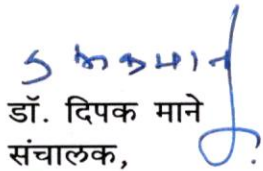 डॉ. दिपक माने
संचालक,